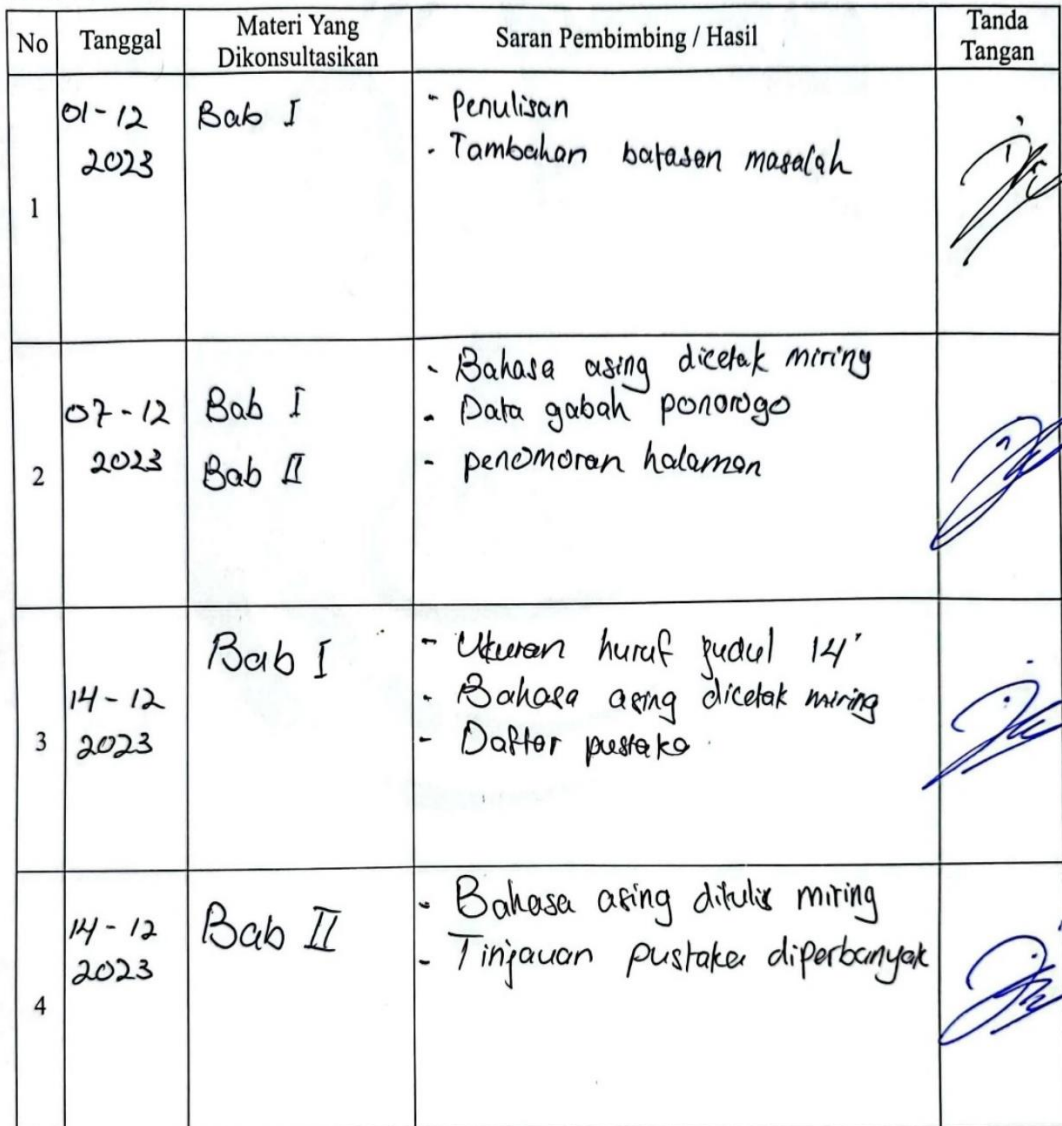 No Tanggal Materi Yang Dikonsultasikan Saran Pembimbing / Hasil Tanda Tangan
1
01-12
2023
Bab I
- Penulisan
- Tambahan batasan masalah
2
07-12
2023
Bab I
Bab II
- Bahasa asing dicetak miring
- Data gabah ponorogo
- penomoran halaman
3
14-12
2023
Bab I
- Ukuran huruf judul 14
- Bahasa asing dicetak miring
- Daftar pustaka
4
14-12
2023
Bab II
- Bahasa asing ditulis miring
- Tinjauan pustaka diperbanyak